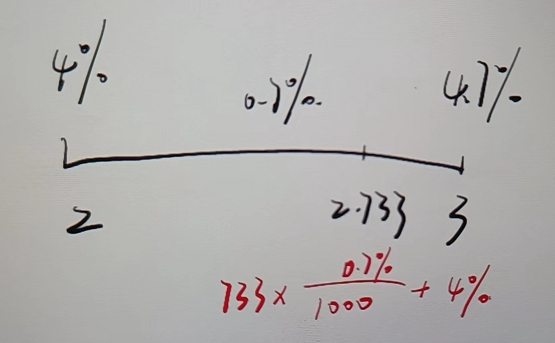 4% 0.7% 4.7%
2 2.733 3
733 × 0.7%/1000 + 4%